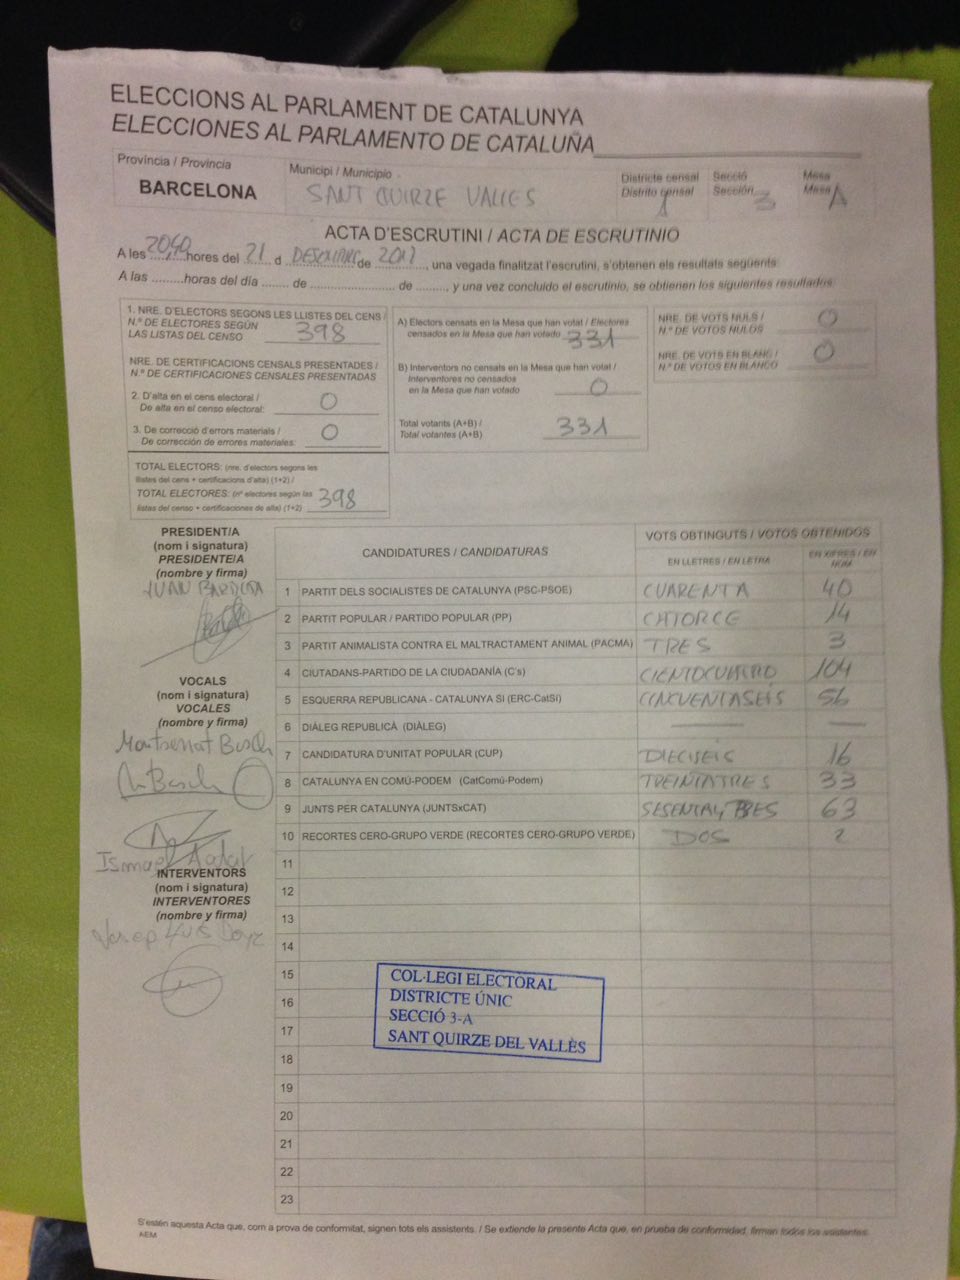 ELECCIONS AL PARLAMENT DE CATALUNYA
ELECCIONES AL PARLAMENTO DE CATALUÑA
Província / Provincia
BARCELONA
Municipi / Municipio
SANT QUIRZE VALLES
Districte censal
Distrito censal
1
Secció
Sección
3
Mesa
Mesa
A
ACTA D'ESCRUTINI / ACTA DE ESCRUTINIO
A les 2040 hores del 21 d DESEMBRE de 2017, una vegada finalitzat l'escrutini, s'obtenen els resultats següents:
A las ......... horas del día ........ de ........................ de .........., y una vez concluido el escrutinio, se obtienen los siguientes resultados:
1. NRE. D'ELECTORS SEGONS LES LLISTES DEL CENS /
N.º DE ELECTORES SEGÚN
LAS LISTAS DEL CENSO 398
NRE. DE CERTIFICACIONS CENSALS PRESENTADES /
N.º DE CERTIFICACIONES CENSALES PRESENTADAS
2. D'alta en el cens electoral /
De alta en el censo electoral: 0
3. De correcció d'errors materials /
De corrección de errores materiales: 0
TOTAL ELECTORS: (nre. d'electors segons les
llistes del cens + certificacions d'alta) (1+2) /
TOTAL ELECTORES: (nº electores según las
listas del censo + certificaciones de alta) (1+2) 398
A) Electors censats en la Mesa que han votat / Electores
censados en la Mesa que han votado 331
B) Interventors no censats en la Mesa que han votat /
Interventores no censados
en la Mesa que han votado 0
Total votants (A+B) /
Total votantes (A+B) 331
NRE. DE VOTS NULS /
N.º DE VOTOS NULOS 0
NRE. DE VOTS EN BLANC /
N.º DE VOTOS EN BLANCO 0
PRESIDENT/A
(nom i signatura)
PRESIDENTE/A
(nombre y firma)
JUAN
VOCALS
(nom i signatura)
VOCALES
(nombre y firma)
Montserrat Bosch
Bosch
Ismael
INTERVENTORS
(nom i signatura)
INTERVENTORES
(nombre y firma)
Josep
CANDIDATURES / CANDIDATURAS
VOTS OBTINGUTS / VOTOS OBTENIDOS
EN LLETRES / EN LETRA
EN XIFRES / EN NÚM.
1 PARTIT DELS SOCIALISTES DE CATALUNYA (PSC-PSOE) CUARENTA 40
2 PARTIT POPULAR / PARTIDO POPULAR (PP) CATORCE 14
3 PARTIT ANIMALISTA CONTRA EL MALTRACTAMENT ANIMAL (PACMA) TRES 3
4 CIUTADANS-PARTIDO DE LA CIUDADANÍA (C's) CIENTOCUATRO 104
5 ESQUERRA REPUBLICANA - CATALUNYA SÍ (ERC-CatSí) CINCUENTASEIS 56
6 DIÀLEG REPUBLICÀ (DIÀLEG)
7 CANDIDATURA D'UNITAT POPULAR (CUP) DIECISEIS 16
8 CATALUNYA EN COMÚ-PODEM (CatComú-Podem) TREINTATRES 33
9 JUNTS PER CATALUNYA (JUNTSxCAT) SESENTA Y TRES 63
10 RECORTES CERO-GRUPO VERDE (RECORTES CERO-GRUPO VERDE) DOS 2
11
12
13
14
15
16
17
18
19
20
21
22
23
COL·LEGI ELECTORAL
DISTRICTE ÚNIC
SECCIÓ 3-A
SANT QUIRZE DEL VALLÈS
S'estén aquesta Acta que, com a prova de conformitat, signen tots els assistents. / Se extiende la presente Acta que, en prueba de conformidad, firman todos los asistentes.
AEM